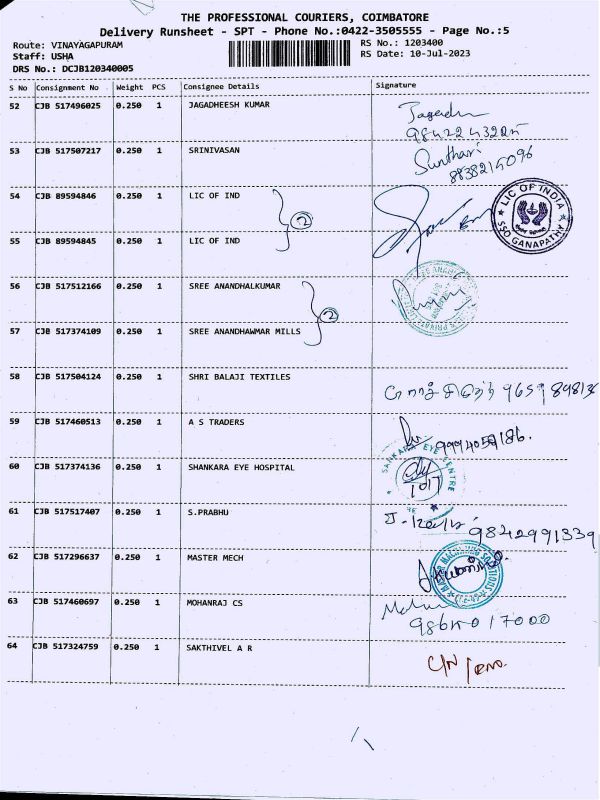 THE PROFESSIONAL COURIERS, COIMBATORE
Delivery Runsheet - SPT - Phone No.:0422-3505555 - Page No.:5
Route: VINAYAGAPURAM RS No.: 1203400
Staff: USHA RS Date: 10-Jul-2023
DRS No.: DCJB120340005
S No Consignment No Weight PCS Consignee Details Signature
52 CJB 517496025 0.250 1 JAGADHEESH KUMAR
53 CJB 517507217 0.250 1 SRINIVASAN Sunthari
54 CJB 89594846 0.250 1 LIC OF IND 2 LIC OF INDIA SSO GANAPATHY
55 CJB 89594845 0.250 1 LIC OF IND
56 CJB 517512166 0.250 1 SREE ANANDHALKUMAR 2
57 CJB 517374109 0.250 1 SREE ANANDHAWMAR MILLS
58 CJB 517504124 0.250 1 SHRI BALAJI TEXTILES
59 CJB 517460513 0.250 1 A S TRADERS
60 CJB 517374136 0.250 1 SHANKARA EYE HOSPITAL SANKARA EYE CENTRE 10/7
61 CJB 517517407 0.250 1 S.PRABHU 9842991339
62 CJB 517296637 0.250 1 MASTER MECH
63 CJB 517460697 0.250 1 MOHANRAJ CS
64 CJB 517324759 0.250 1 SAKTHIVEL A R C/N